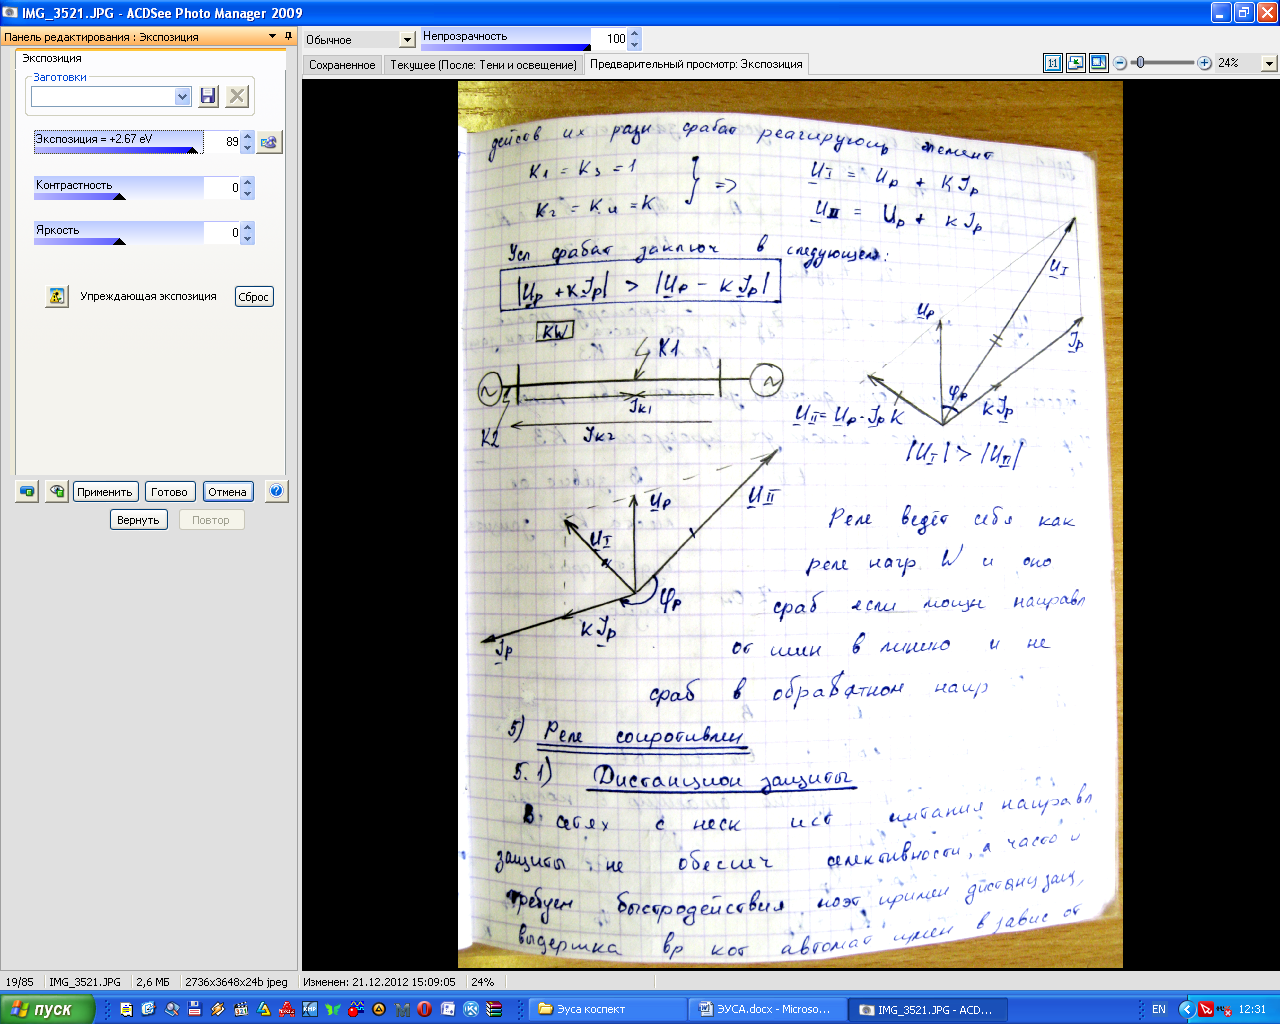 IMG_3521.JPG - ACDSee Photo Manager 2009
Панель редактирования : Экспозиция
Экспозиция
Заготовки
Экспозиция = +2.67 eV 89
Контрастность 0
Яркость 0
Упреждающая экспозиция Сброс
Применить Готово Отмена
Вернуть Повтор
Обычное Непрозрачность 100
Сохраненное Текущее (После: Тени и освещение) Предварительный просмотр: Экспозиция 1:1 24%
действ их разн срабат реагирующ элемент
K1 = K3 = 1 } => U_I = U_p + K I_p
K2 = K4 = K U_II = U_p + K I_p
Усл срабат заключ в следующем:
|U_p + K I_p| > |U_p - K I_p|
KW
K1
I_K1
K2 I_K2
U_I
U_p
I_p
φ_p
K I_p
U_II = U_p - I_p K
|U_I| > |U_II|
U_II
U_p
U_I
φ_p
K I_p
I_p
Реле ведёт себя как
реле напр W и оно
сраб если мощн направл
от шин в линию и не
сраб в обратном напр
5) Реле сопротивлен
5.1) Дистанцион защиты
В сетях с неск ист питания направл
защиты не обеспеч селективности, а часто и
требуем быстродействия поэт примен дистанц защ,
выдержка вр кот автомат измен в завис от
19/85 IMG_3521.JPG 2,6 МБ 2736x3648x24b jpeg Изменен: 21.12.2012 15:09:05 24%
пуск Эуса коспект ЭУСА.docx - Microso... IMG_3521.JPG - ACD... EN 12:31